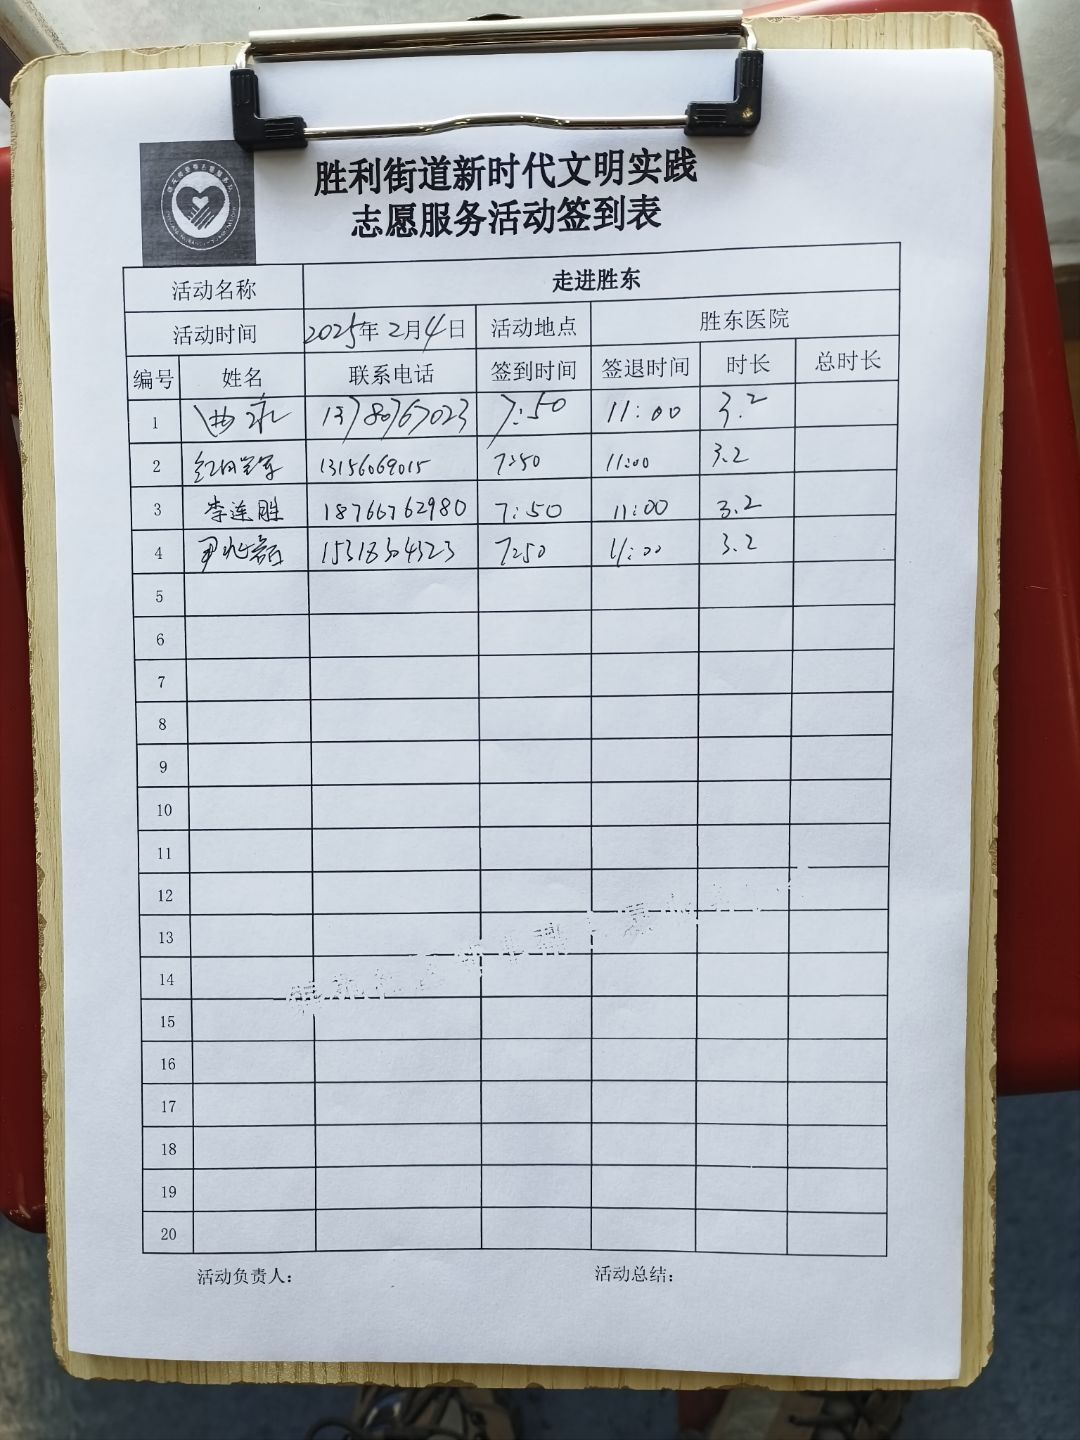 胜利街道新时代文明实践
志愿服务活动签到表
活动名称 走进胜东
活动时间 2025年 2月4日 活动地点 胜东医院
编号 姓名 联系电话 签到时间 签退时间 时长 总时长
1 13780767023 7:50 11:00 3.2
2 13156069015 7:50 11:00 3.2
3 李连胜 18766762980 7:50 11:00 3.2
4 15318304523 7:50 11:00 3.2
5
6
7
8
9
10
11
12
13
14
15
16
17
18
19
20
活动负责人: 活动总结: